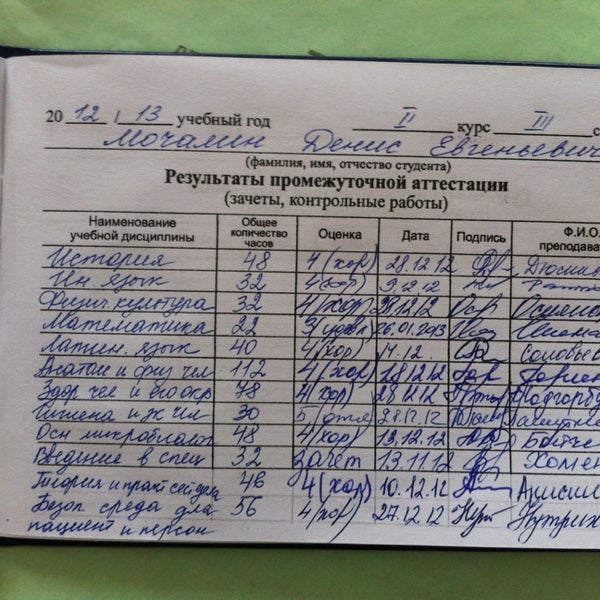 2012/13 учебный год II курс III с
Мочалин Денис Евгеньевич
(фамилия, имя, отчество студента)
Результаты промежуточной аттестации
(зачеты, контрольные работы)
Наименование учебной дисциплины Общее количество часов Оценка Дата Подпись Ф.И.О. преподава
История 48 4 (хор) 28.12.12
Ин. язык 32 4 (хор)
Физич. культура 32 4 (хор) 28.12.12
Математика 22 3 (удвл) 26.01.2013
Латин. язык 40 4 (хор) 14.12. Соловьев
Анатом и физ чел 112 4 (хор) 28.12.12
Здор чел и его окр 78 4 (хор) 28.12.12 Подгорбу
Гигиена и эк чел 30 5 (отл) 28.12.12
Осн микробиолог 48 4 (хор) 13.12.12
Введение в спец 32 Зачёт 13.11.12 Хомен
Теория и практ сестр дела 46 4 (хор) 10.12.12 Анисим
Безоп среда для 56 4 (хор) 27.12.12 Нутрих
пациент и персон